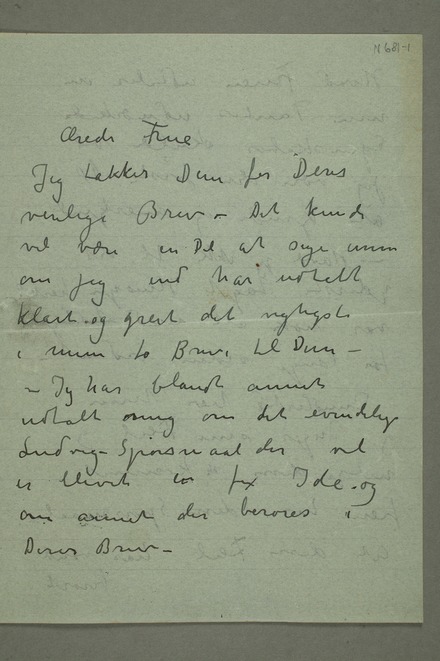 N 681-1
Ærede Frue
Jeg takker Dem for Deres
venlige Brev – Det kunde
vel være en Del at sige men
om jeg end har udtalt
klart og greit det vigtigste
i mine to Breve til Dem –
– Jeg har blandt annet
udtalt mig om det evindelige
Ludvig-Spörsmaal der vel
er blevet en fix Ide og
om annet der berøres i
Deres Brev –